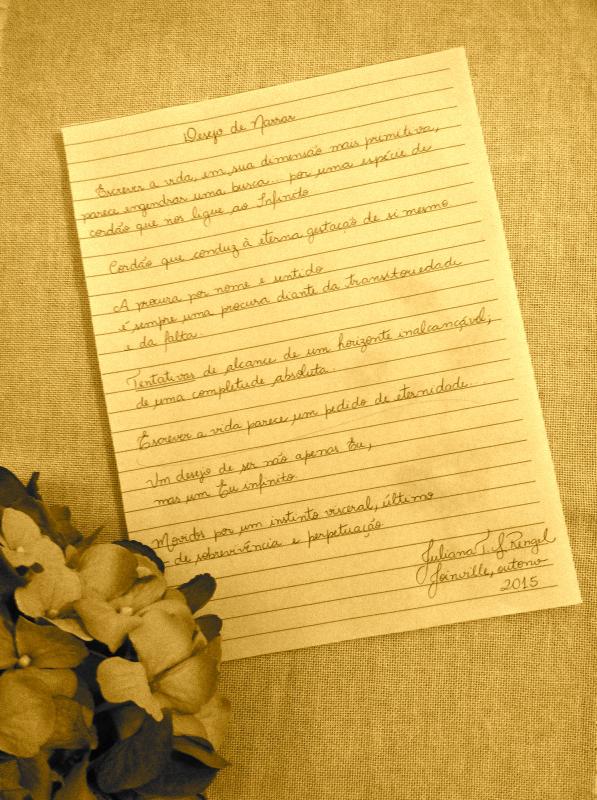 Desejo de Narrar
Escrever a vida, em sua dimensão mais primitiva,
parece engendrar uma busca... por uma espécie de
cordão que nos ligue ao Infinito
Cordão que conduz à eterna gestação de si mesmo
A procura por nome e sentido
é sempre uma procura diante da transitoriedade
e da falta.
Tentativas de alcance de um horizonte inalcançável;
de uma completude absoluta.
Escrever a vida parece um pedido de eternidade...
Um desejo de ser não apenas Eu,
mas um Eu infinito
Movidos por um instinto visceral, último
- de sobrevivência e perpetuação
Juliana T. J. Rengel
Joinville, outono
2015